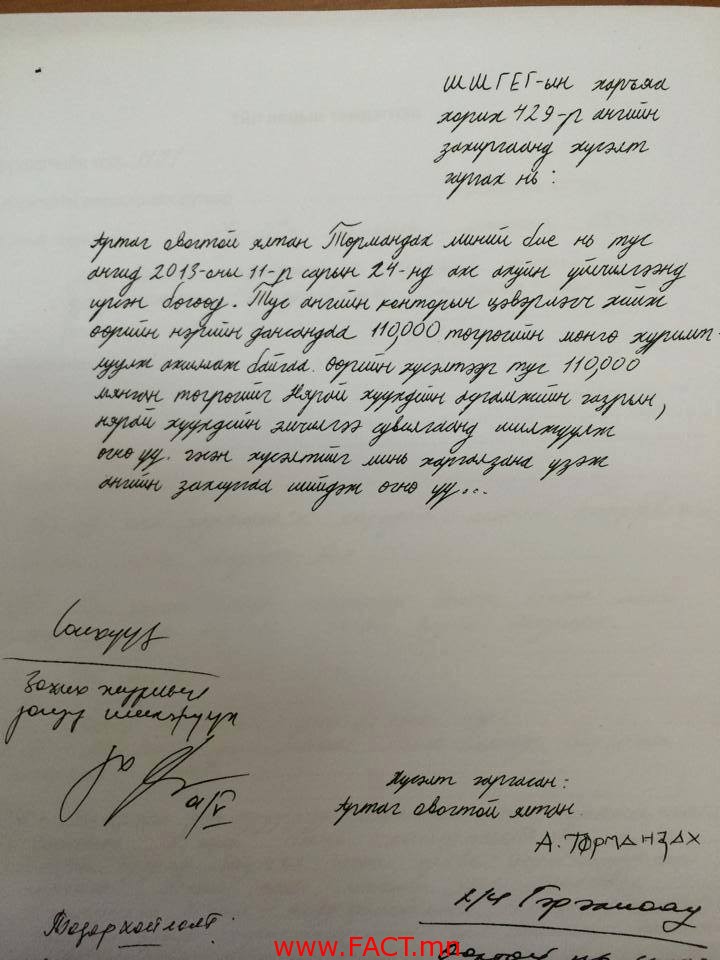 ШШГЕГ-ын харъяа
хорих 429-р ангийн
захиргаанд хүсэлт
гаргах нь:
Артаг овогтой ялтан Төрмандах миний бие нь тус
ангид 2013-оны 11-р сарын 24-нд аж ахуйн үйлчилгээнд
ирсэн бөгөөд. Тус ангийн конторын цэвэрлэгч хийж
өөрийн нэрийн дансандаа 110,000 төгрөгийн мөнгө хуримт-
луулж ажиллаж байгаа. Өөрийн хүсэлтээр тус 110,000
мянган төгрөгийг Нярай хүүхдийн эндэгдлийн газрын,
нярай хүүхдийн эмчилгээ сувилгаанд шилжүүлж
өгнө үү. гэсэн хүсэлтийг минь харгалзана үзэж
ангийн захиргаа шийдэж өгнө үү...
Захих журмын
дагуу шилжүүлэх
Хүсэлт гаргасан:
Артаг овогтой ялтан
А. Төрмандах
Тодорхойлолт.
www.FACT.mn